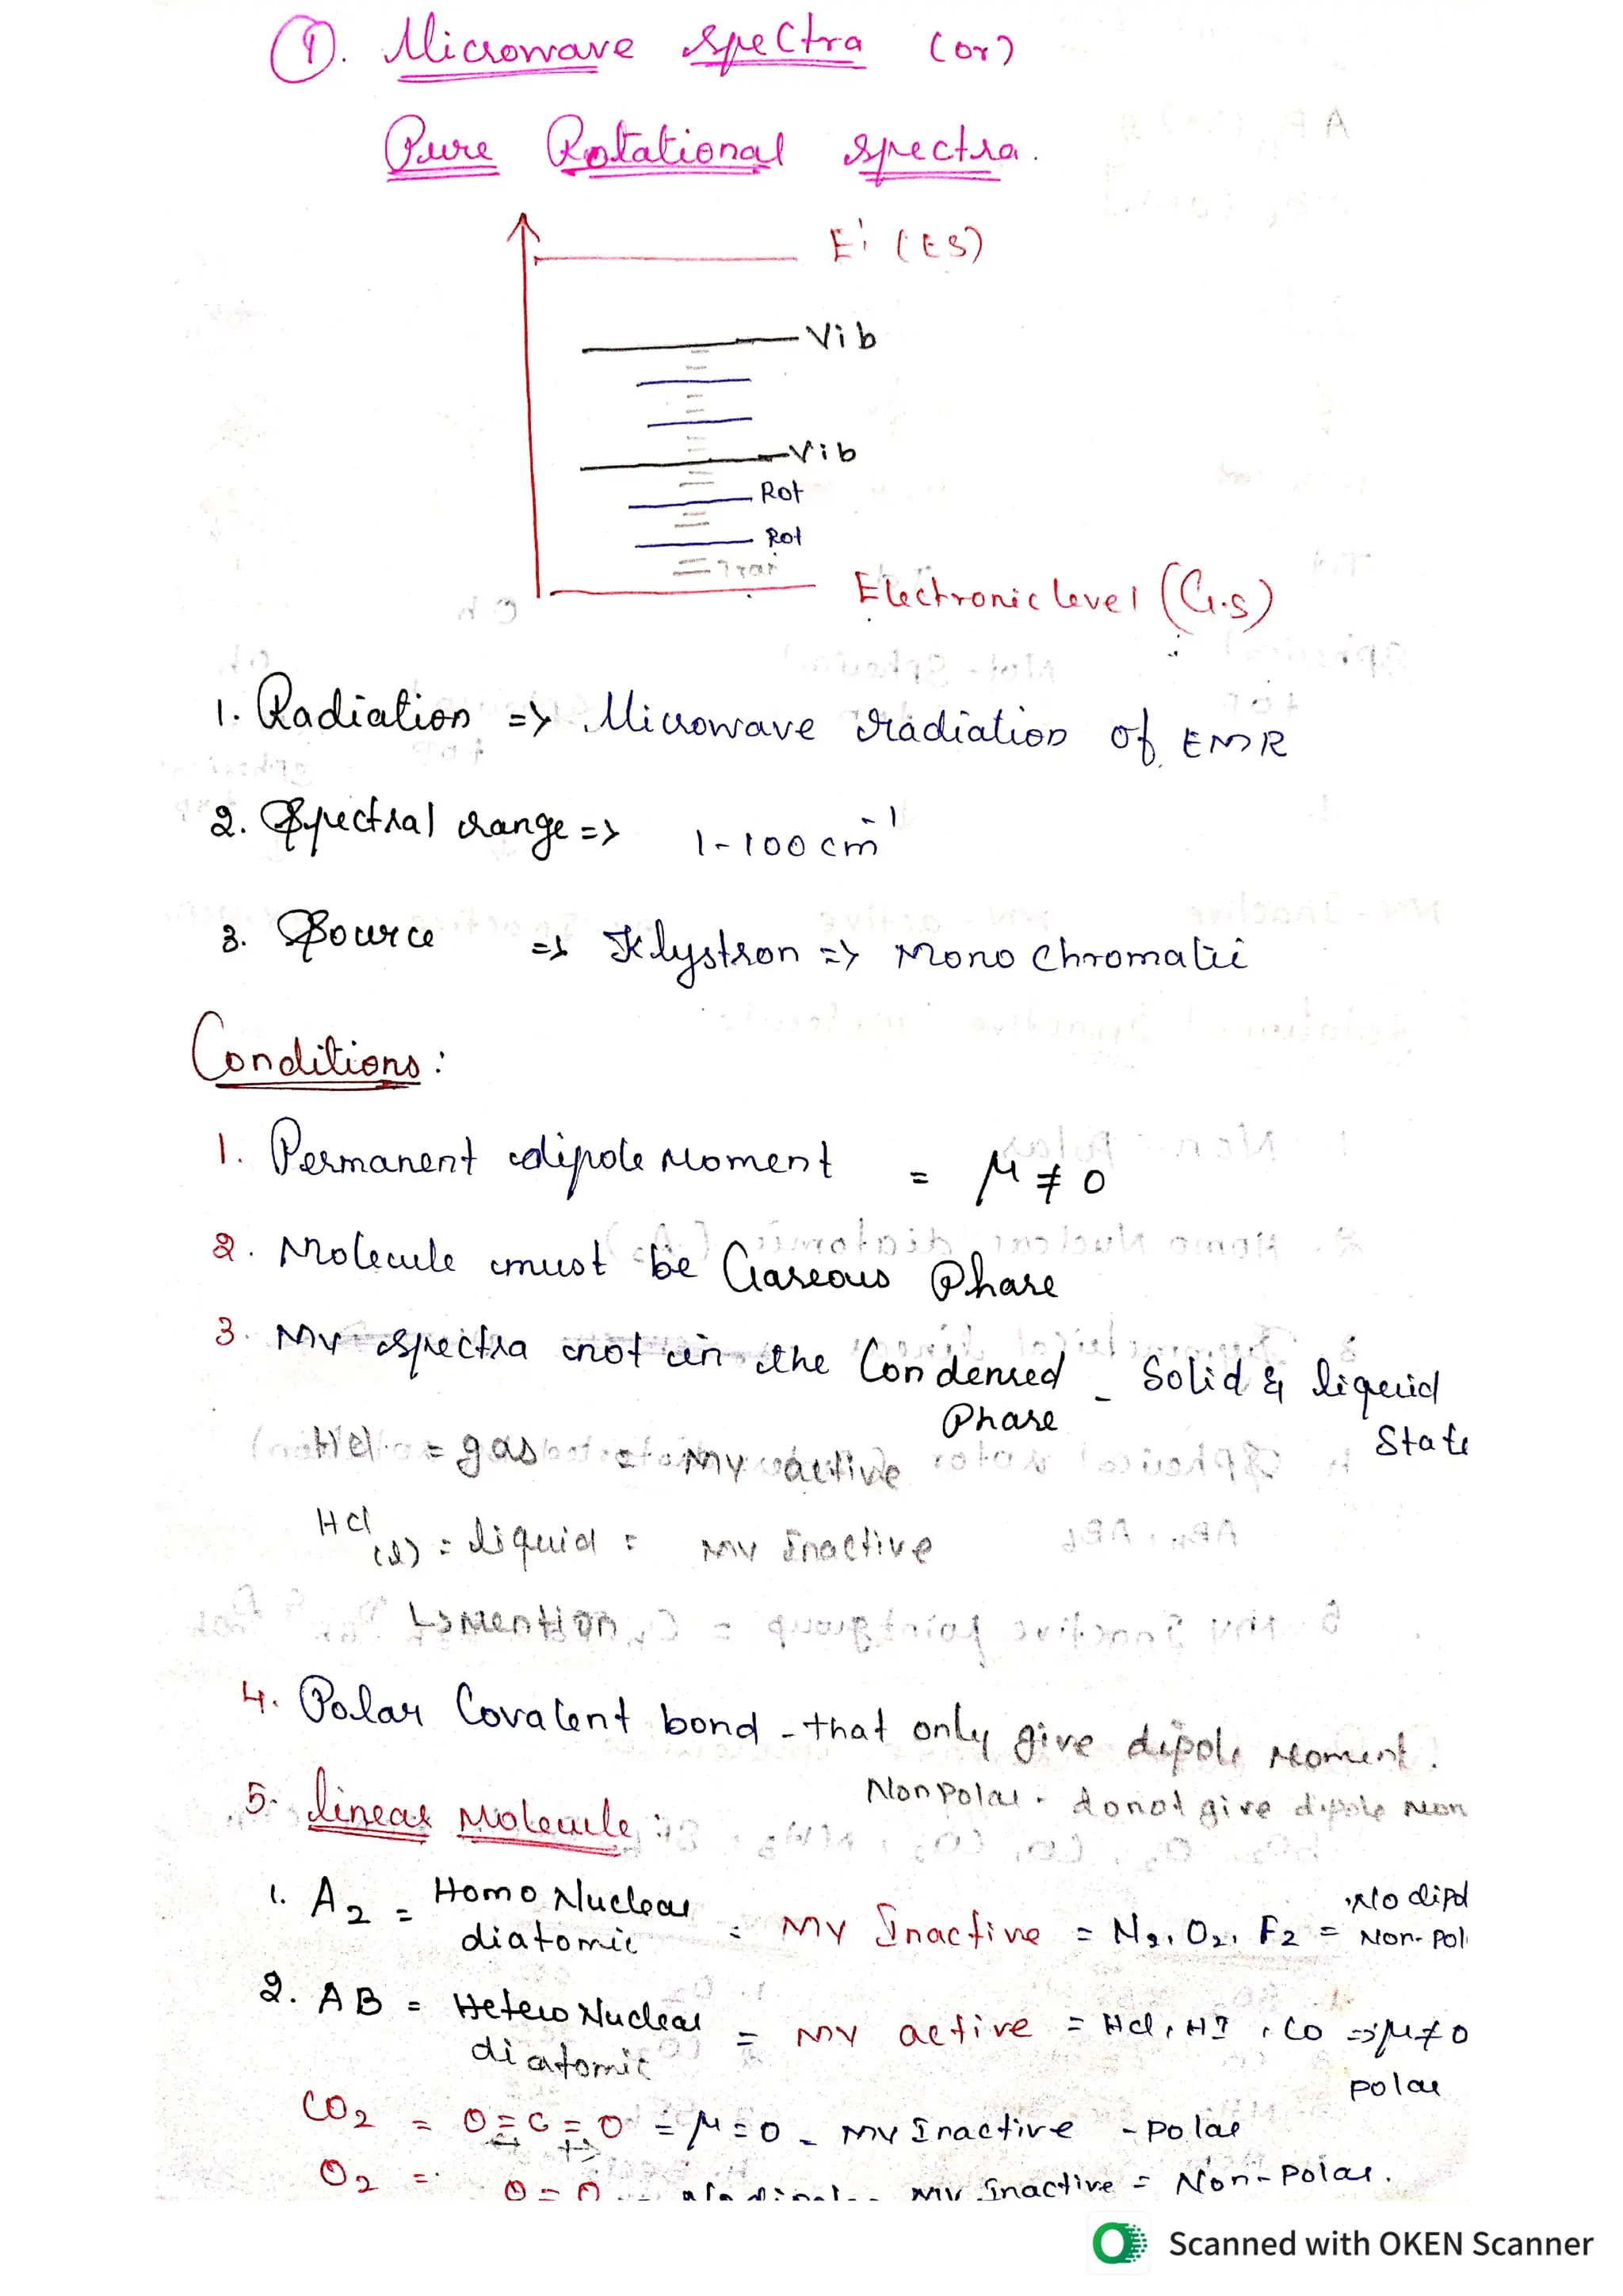 1. Microwave Spectra (or)
Pure Rotational Spectra.
E' (ES)
Vib
Vib
Rot
Rot
Tran
Electronic level (G.S)
1. Radiation => Microwave radiation of EMR
2. Spectral range => 1-100 cm⁻¹
3. Source => Klystron => Mono Chromatic
Conditions:
1. Permanent dipole Moment = μ ≠ 0
2. Molecule must be Gaseous Phase
3. MW spectra not in the Condensed Phase - Solid & liquid State
Hcl = gas = MW active
Hcl (l) = liquid = MW Inactive
↳ Mention
4. Polar Covalent bond - that only give dipole Moment.
Non polar - donot give dipole Mom
5. linear Molecule :
1. A₂ = Homo Nuclear diatomic = MW Inactive = N₂, O₂, F₂ = No dipol Non-pol
2. AB = Hetero Nuclear diatomic = MW active = Hcl, HI, CO => μ≠0 polar
CO₂ = O=C=O = μ=0 - MW Inactive - polar
O₂ = O=O MW Inactive = Non-polar.
Scanned with OKEN Scanner